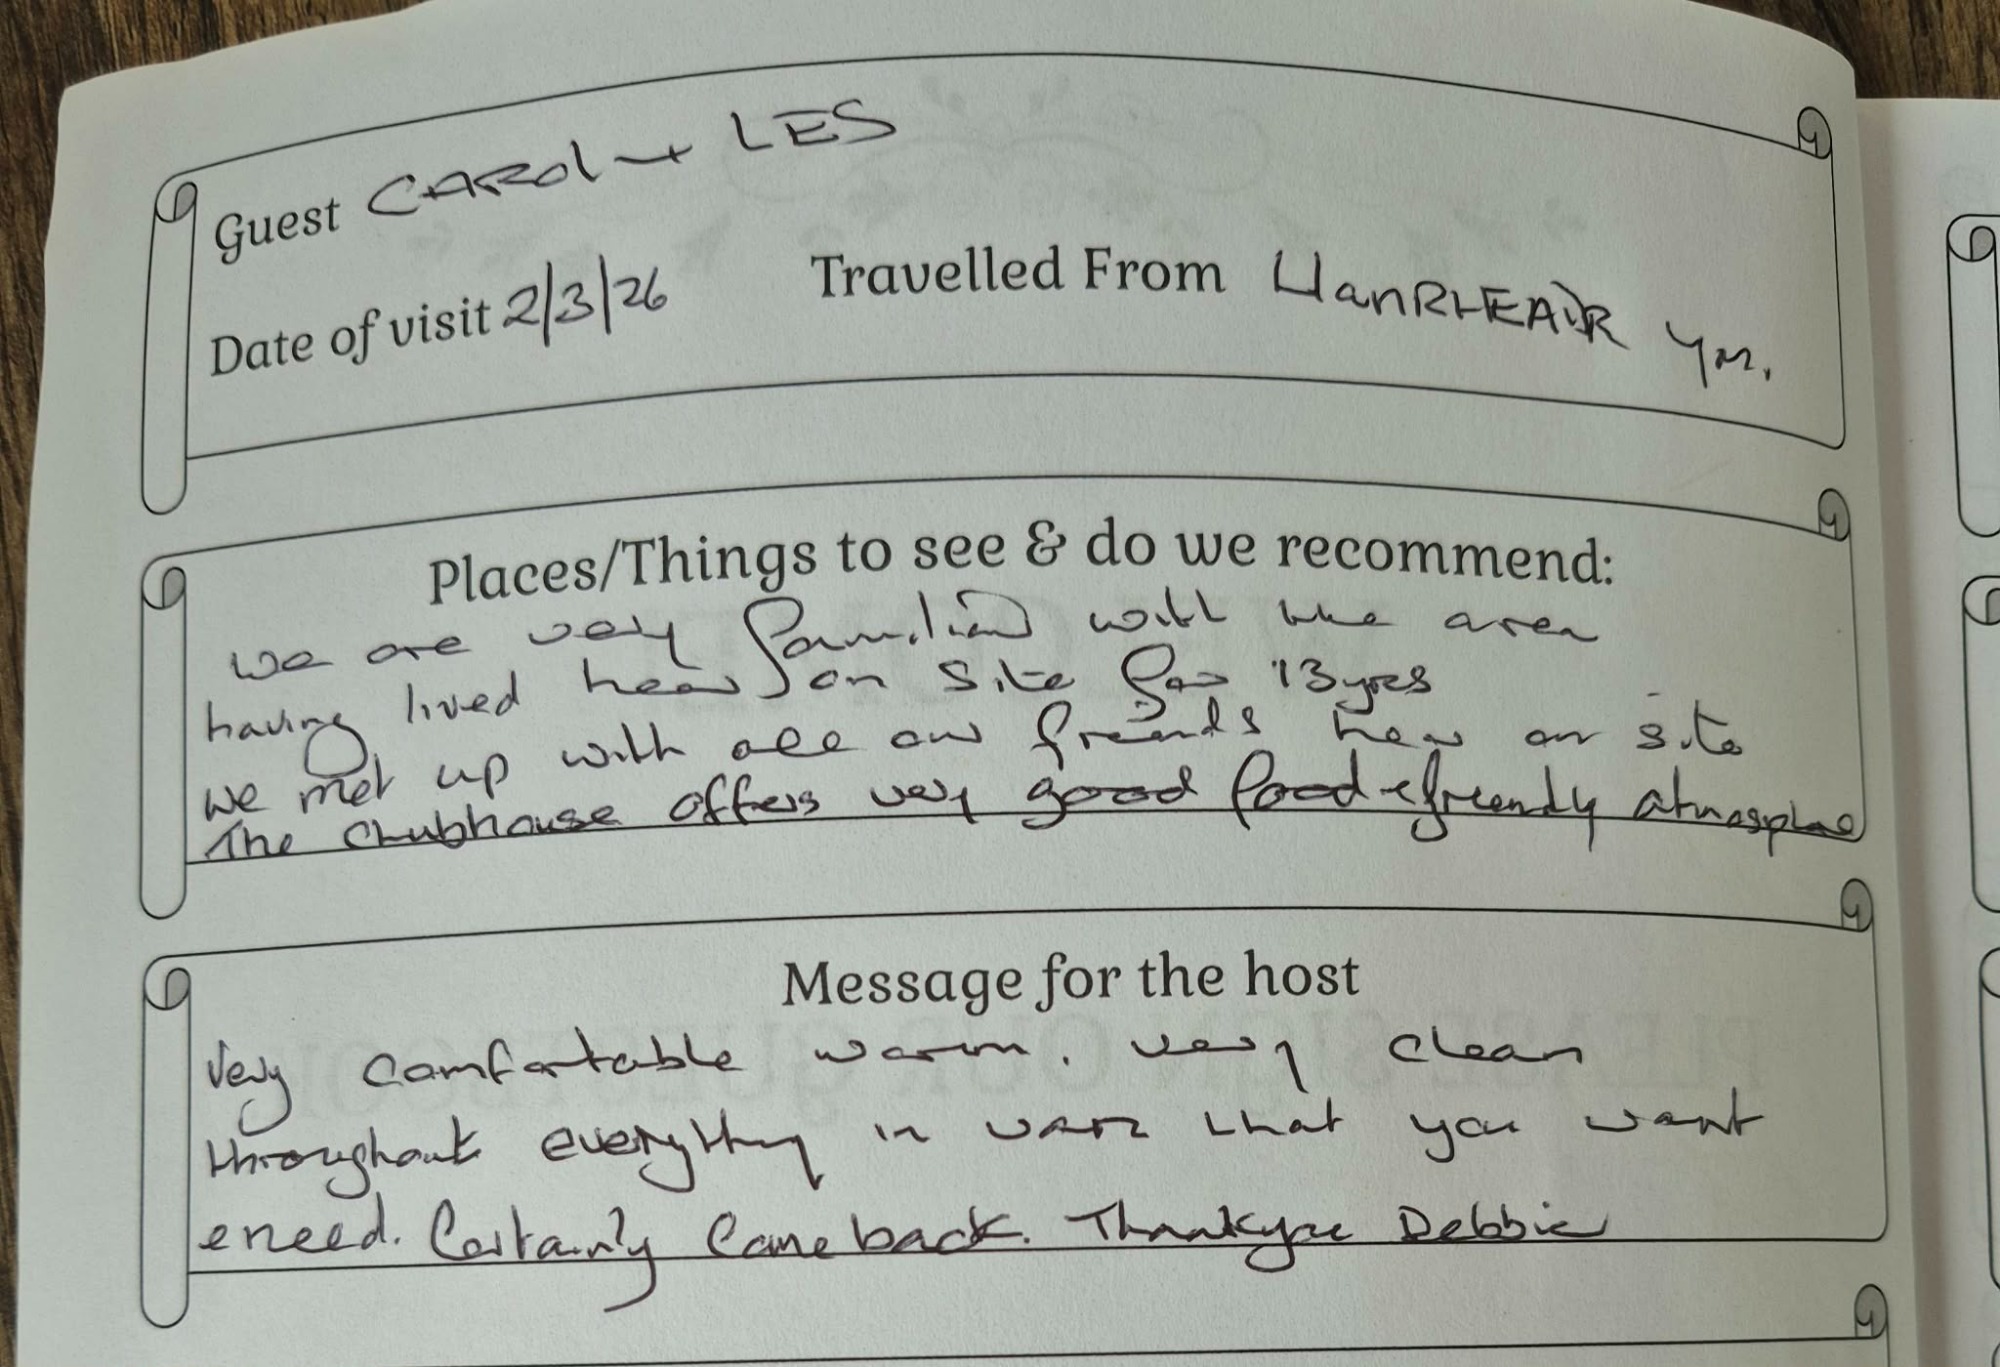 Guest CAROl + LES
Date of visit 2/3/26 Travelled From LlanRHEADR ym.
Places/Things to see & do we recommend:
we are very familiar with the area
having lived hear on site for 13yrs
we met up with all our friends hear on site
The Clubhouse offers very good food & friendly atmosphere
Message for the host
Very comfortable warm. very clean
throughout everything in van that you want
& need. Certainly come back. Thankyou Debbie